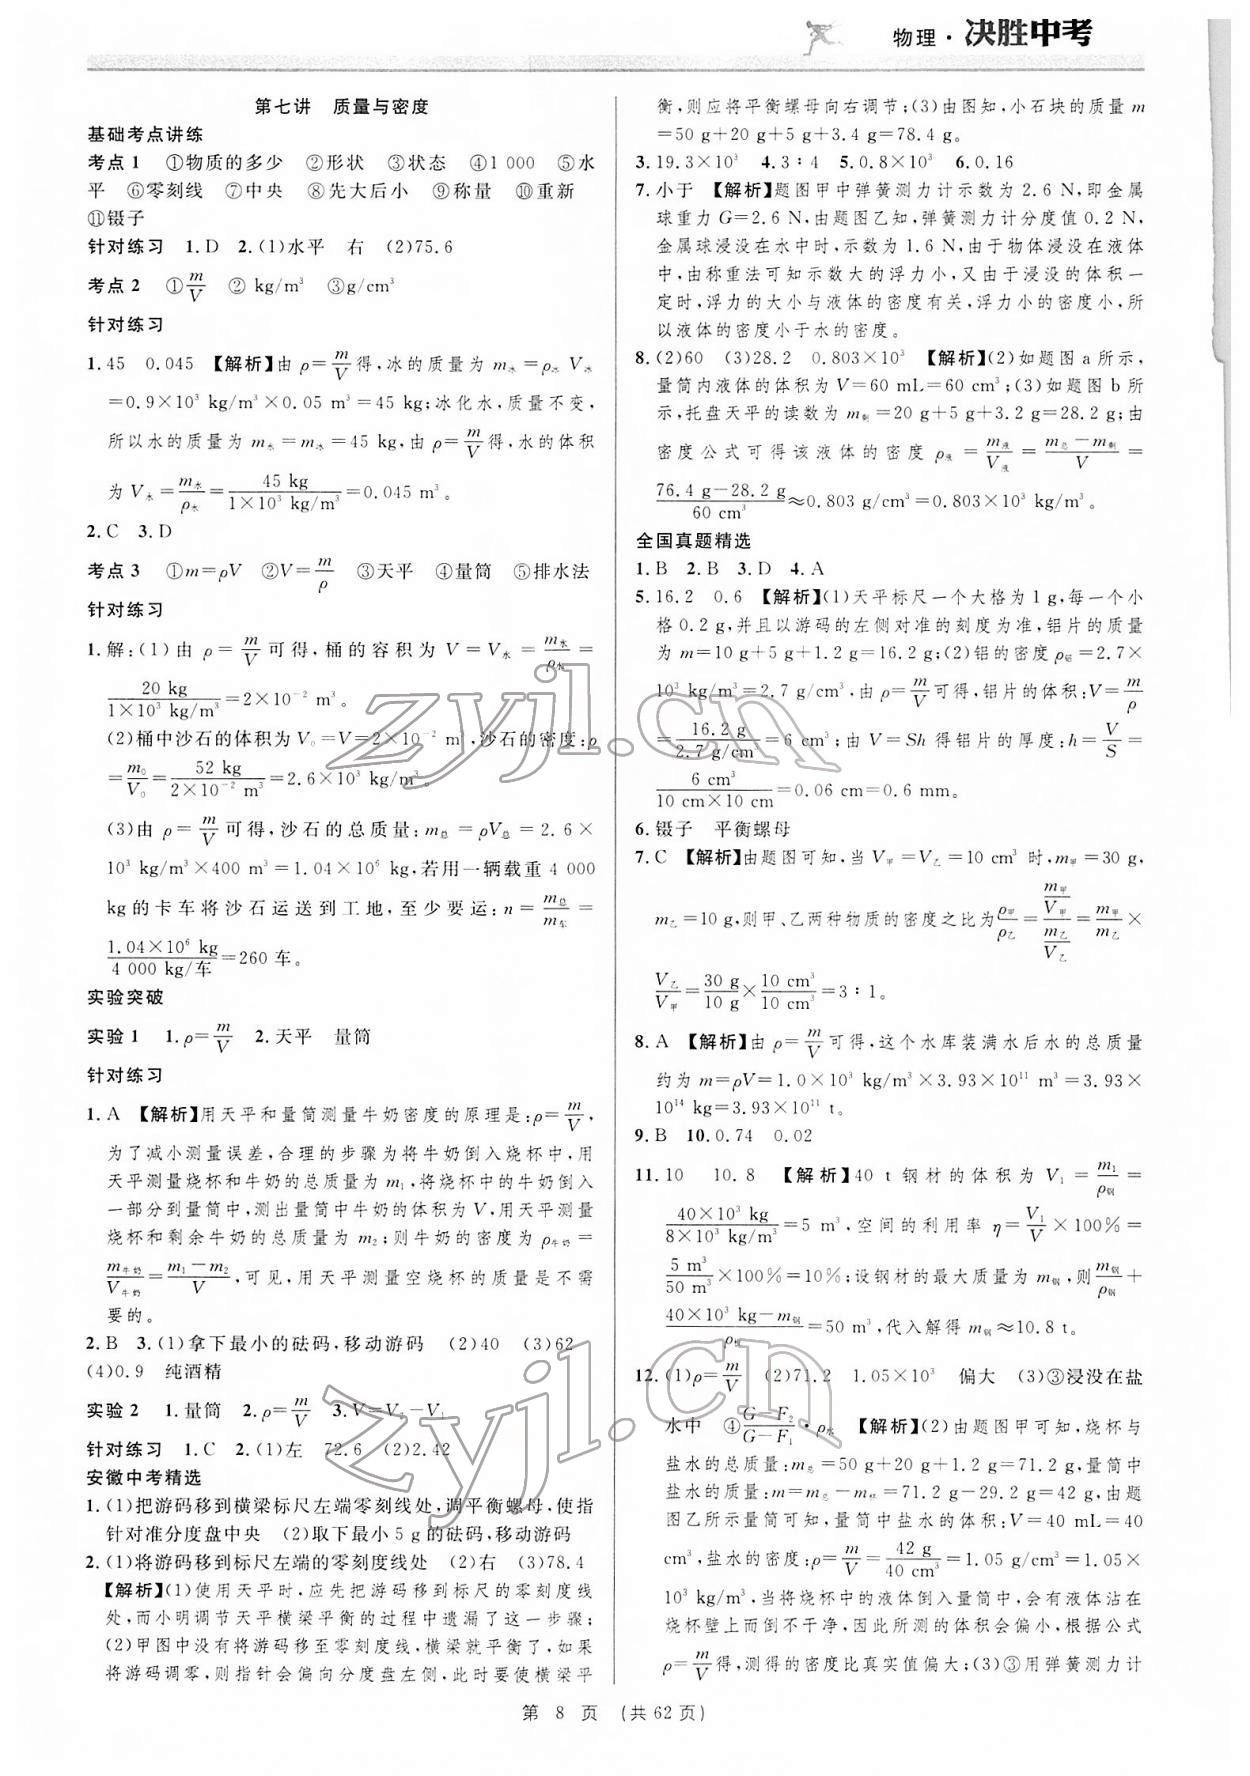 物理·决胜中考
第七讲 质量与密度
基础考点讲练
考点1 ①物质的多少 ②形状 ③状态 ④1 000 ⑤水
平 ⑥零刻线 ⑦中央 ⑧先大后小 ⑨称量 ⑩重新
⑪镊子
针对练习 1.D 2.(1)水平 右 (2)75.6
考点2 ①m/V ② kg/m³ ③g/cm³
针对练习
1.45 0.045 【解析】由ρ=m/V得,冰的质量为m冰=ρ冰V冰
=0.9×10³ kg/m³×0.05 m³=45 kg;冰化水,质量不变,
所以水的质量为m水=m冰=45 kg,由ρ=m/V得,水的体积
为V水=m水/ρ水=45 kg/(1×10³ kg/m³)=0.045 m³。
2.C 3.D
考点3 ①m=ρV ②V=m/ρ ③天平 ④量筒 ⑤排水法
针对练习
1.解:(1)由ρ=m/V可得,桶的容积为V=V水=m水/ρ水=
20 kg/(1×10³ kg/m³)=2×10⁻² m³。
(2)桶中沙石的体积为V₀=V=2×10⁻² m³,沙石的密度:ρ
=m₀/V₀=52 kg/(2×10⁻² m³)=2.6×10³ kg/m³。
(3)由ρ=m/V可得,沙石的总质量:m总=ρV总=2.6×
10³ kg/m³×400 m³=1.04×10⁶ kg,若用一辆载重4 000
kg的卡车将沙石运送到工地,至少要运:n=m总/m车=
1.04×10⁶ kg/(4 000 kg/车)=260车。
实验突破
实验1 1.ρ=m/V 2.天平 量筒
针对练习
1.A 【解析】用天平和量筒测量牛奶密度的原理是:ρ=m/V,
为了减小测量误差,合理的步骤为将牛奶倒入烧杯中,用
天平测量烧杯和牛奶的总质量为m₁,将烧杯中的牛奶倒入
一部分到量筒中,测出量筒中牛奶的体积为V,用天平测量
烧杯和剩余牛奶的总质量为m₂;则牛奶的密度为ρ牛奶=
m牛奶/V牛奶=(m₁-m₂)/V,可见,用天平测量空烧杯的质量是不需
要的。
2.B 3.(1)拿下最小的砝码,移动游码 (2)40 (3)62
(4)0.9 纯酒精
实验2 1.量筒 2.ρ=m/V 3.V=V₂-V₁
针对练习 1.C 2.(1)左 72.6 (2)2.42
安徽中考精选
1.(1)把游码移到横梁标尺左端零刻线处,调平衡螺母,使指
针对准分度盘中央 (2)取下最小5 g的砝码,移动游码
2.(1)将游码移到标尺左端的零刻度线处 (2)右 (3)78.4
【解析】(1)使用天平时,应先把游码移到标尺的零刻度线
处,而小明调节天平横梁平衡的过程中遗漏了这一步骤;
(2)甲图中没有将游码移至零刻度线,横梁就平衡了,如果
将游码调零,则指针会偏向分度盘左侧,此时要使横梁平
衡,则应将平衡螺母向右调节;(3)由图知,小石块的质量m
=50 g+20 g+5 g+3.4 g=78.4 g。
3.19.3×10³ 4.3∶4 5.0.8×10³ 6.0.16
7.小于 【解析】题图甲中弹簧测力计示数为2.6 N,即金属
球重力G=2.6 N,由题图乙知,弹簧测力计分度值0.2 N,
金属球浸没在水中时,示数为1.6 N,由于物体浸没在液体
中,由称重法可知示数大的浮力小,又由于浸没的体积一
定时,浮力的大小与液体的密度有关,浮力小的密度小,所
以液体的密度小于水的密度。
8.(2)60 (3)28.2 0.803×10³ 【解析】(2)如题图a所示,
量筒内液体的体积为V=60 mL=60 cm³;(3)如题图b所
示,托盘天平的读数为m剩=20 g+5 g+3.2 g=28.2 g;由
密度公式可得该液体的密度ρ液=m液/V液=(m总-m剩)/V=
(76.4 g-28.2 g)/60 cm³≈0.803 g/cm³=0.803×10³ kg/m³。
全国真题精选
1.B 2.B 3.D 4.A
5.16.2 0.6 【解析】(1)天平标尺一个大格为1 g,每一个小
格0.2 g,并且以游码的左侧对准的刻度为准,铝片的质量
为m=10 g+5 g+1.2 g=16.2 g;(2)铝的密度ρ铝=2.7×
10³ kg/m³=2.7 g/cm³,由ρ=m/V可得,铝片的体积:V=m/ρ
=16.2 g/(2.7 g/cm³)=6 cm³;由V=Sh得铝片的厚度:h=V/S=
6 cm³/(10 cm×10 cm)=0.06 cm=0.6 mm。
6.镊子 平衡螺母
7.C 【解析】由题图可知,当V甲=V乙=10 cm³时,m甲=30 g,
m乙=10 g,则甲、乙两种物质的密度之比为ρ甲/ρ乙=(m甲/V甲)/(m乙/V乙)=m甲/m乙×
V乙/V甲=30 g/10 g×10 cm³/10 cm³=3∶1。
8.A 【解析】由ρ=m/V可得,这个水库装满水后水的总质量
约为m=ρV=1.0×10³ kg/m³×3.93×10¹¹ m³=3.93×
10¹⁴ kg=3.93×10¹¹ t。
9.B 10.0.74 0.02
11.10 10.8 【解析】40 t钢材的体积为V₁=m₁/ρ钢=
40×10³ kg/(8×10³ kg/m³)=5 m³,空间的利用率η=V₁/V×100%=
5 m³/50 m³×100%=10%;设钢材的最大质量为m钢,则m钢/ρ钢+
(40×10³ kg-m钢)/ρ木=50 m³,代入解得m钢≈10.8 t。
12.(1)ρ=m/V (2)71.2 1.05×10³ 偏大 (3)③浸没在盐
水中 ④(G-F₂)/(G-F₁)·ρ水 【解析】(2)由题图甲可知,烧杯与
盐水的总质量:m总=50 g+20 g+1.2 g=71.2 g,量筒中
盐水的质量:m=m总-m杯=71.2 g-29.2 g=42 g,由题
图乙所示量筒可知,量筒中盐水的体积:V=40 mL=40
cm³,盐水的密度:ρ=m/V=42 g/40 cm³=1.05 g/cm³=1.05×
10³ kg/m³,当将烧杯中的液体倒入量筒中,会有液体沾在
烧杯壁上而倒不干净,因此所测的体积会偏小,根据公式
ρ=m/V得,测得的密度比真实值偏大;(3)③用弹簧测力计
第 8 页 (共62页)
zyjl.cn
zyjl.cn